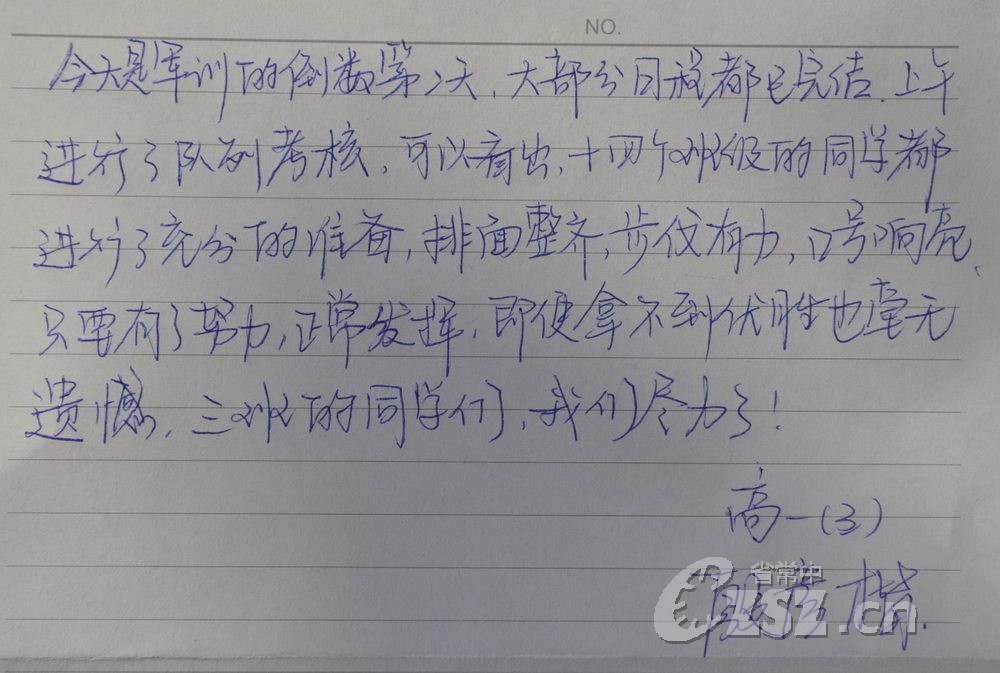 NO.
今天是军训的倒数第2天,大部分日程都已完结.上午
进行了队列考核,可以看出,十四个班级的同学都
进行了充分的准备,排面整齐,步伐有力,口号响亮、
只要有了努力,正常发挥,即便拿不到优胜也毫无
遗憾.三班的同学们,我们尽力了!
高一(3)
省常中
cn